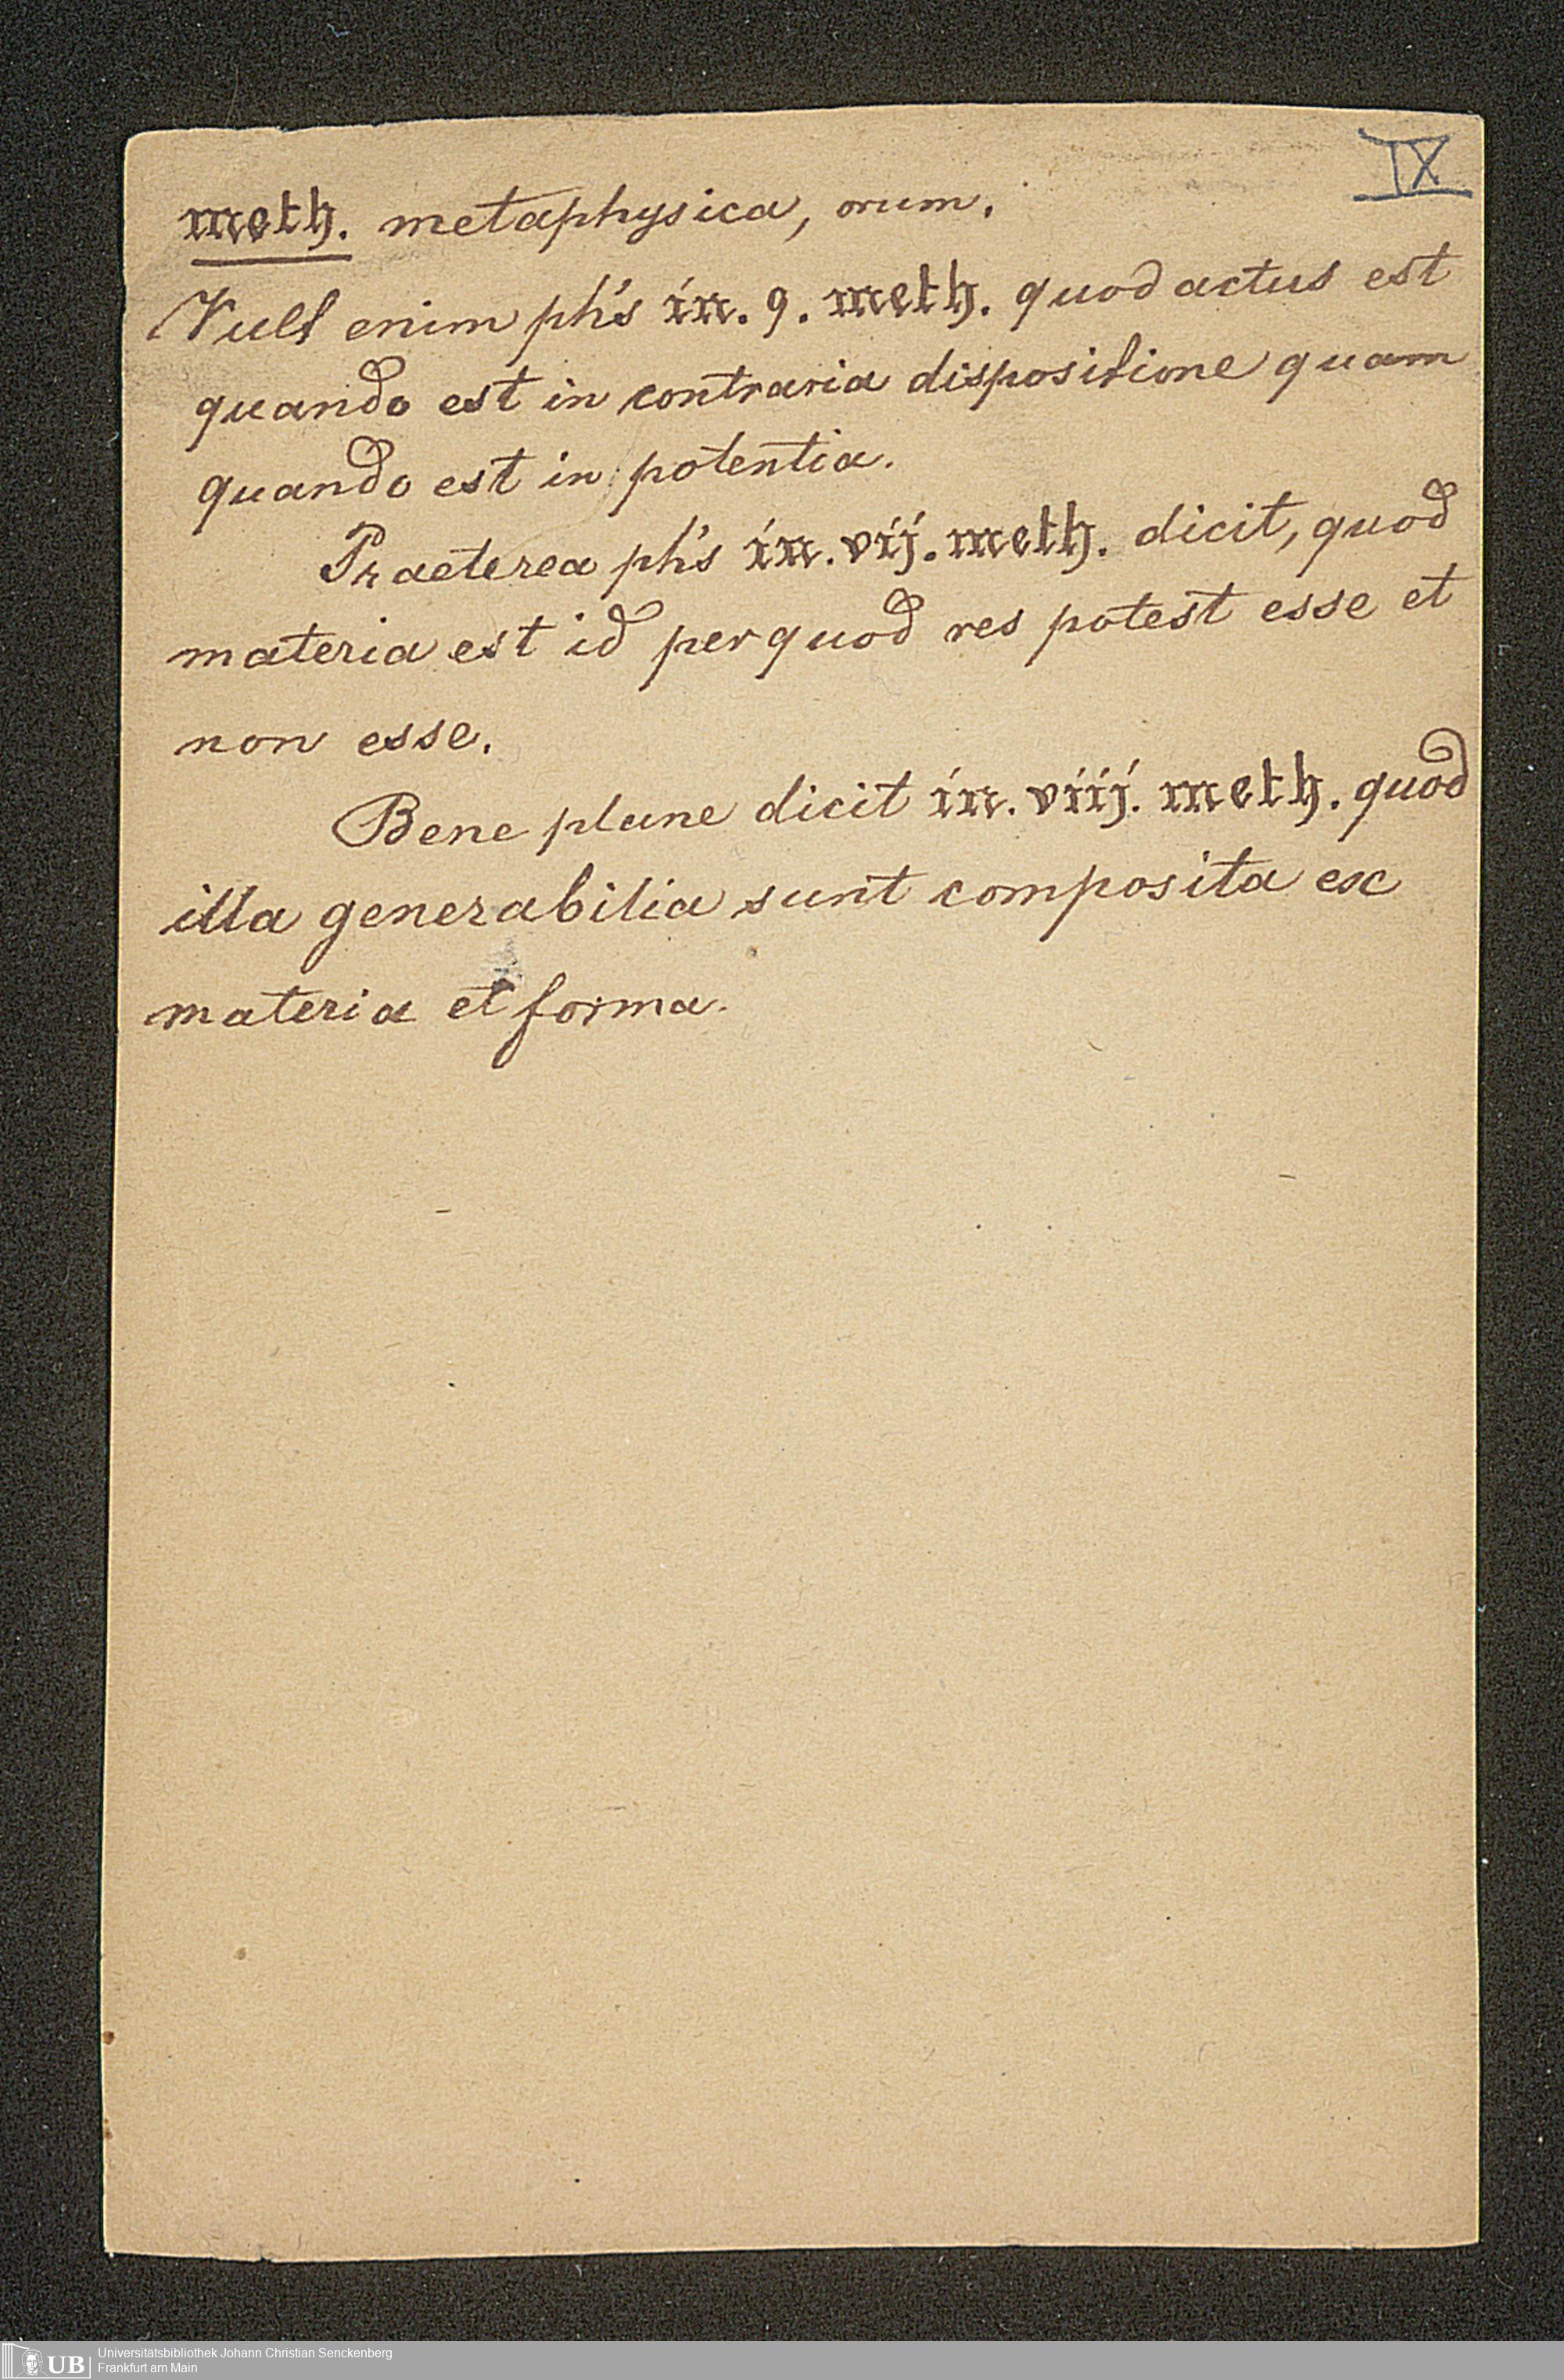 IX
meth. metaphysica, orum.
Vult enim ph's in. 9. meth. quod actus est
quando est in contraria dispositione quam
quando est in potentia.
Praeterea ph's in. vij. meth. dicit, quod
materia est id per quod res potest esse et
non esse.
Bene plane dicit in. viij. meth. quod
illa generabilia sunt composita ex
materia et forma.
UB
Universitätsbibliothek Johann Christian Senckenberg
Frankfurt am Main